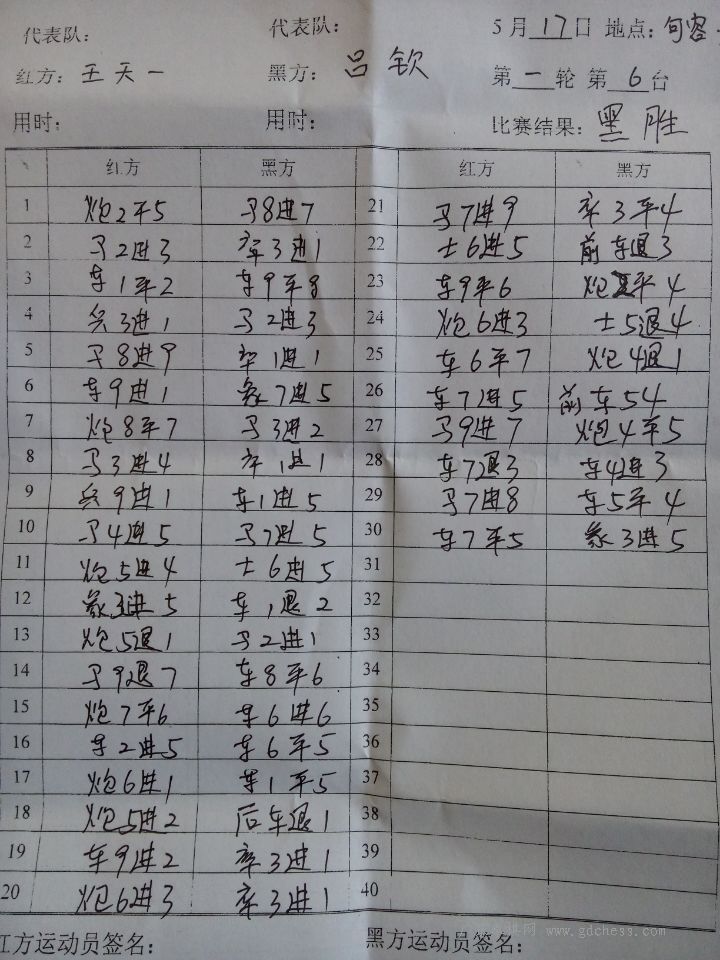 代表队： 代表队： 5月17日 地点：句容
红方：王天一 黑方：吕钦 第一轮 第6台
用时： 用时： 比赛结果：黑胜
红方 黑方 红方 黑方
1 炮2平5 马8进7 21 马7进9 卒3平4
2 马2进3 卒3进1 22 士6进5 前车退3
3 车1平2 车9平8 23 车9平6 炮平4
4 兵3进1 马2进3 24 炮6进3 士5退4
5 马8进9 卒1进1 25 车6平7 炮4退1
6 车9进1 象7进5 26 车7进5 前车54
7 炮8平7 马3进2 27 马9进7 炮4平5
8 马3进4 卒1进1 28 车7退3 车4进3
9 兵9进1 车1进5 29 马7进8 车5平4
10 马4进5 马7进5 30 车7平5 象3进5
11 炮5进4 士6进5 31
12 象3进5 车1退2 32
13 炮5退1 马2进1 33
14 马9退7 车8平6 34
15 炮7平6 车6进6 35
16 车2进5 车6平5 36
17 炮6进1 车1平5 37
18 炮5进2 后车退1 38
19 车9进2 卒3进1 39
20 炮6进3 卒3进1 40
www.gdchess.com
红方运动员签名： 黑方运动员签名：